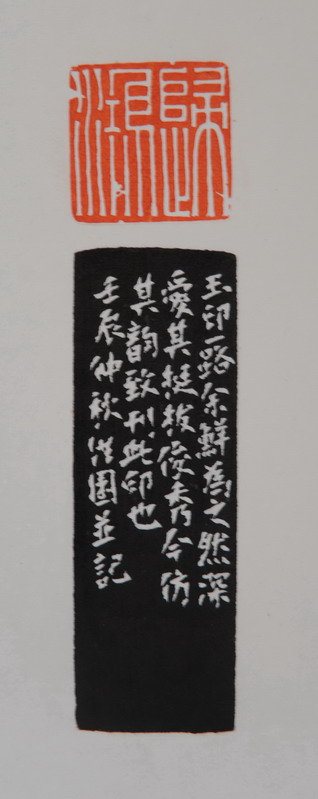 歸鴻
玉印一路余鮮爲之然深
愛其挺拔俊秀今仿
其韵致刊此印也
壬辰仲秋園並記